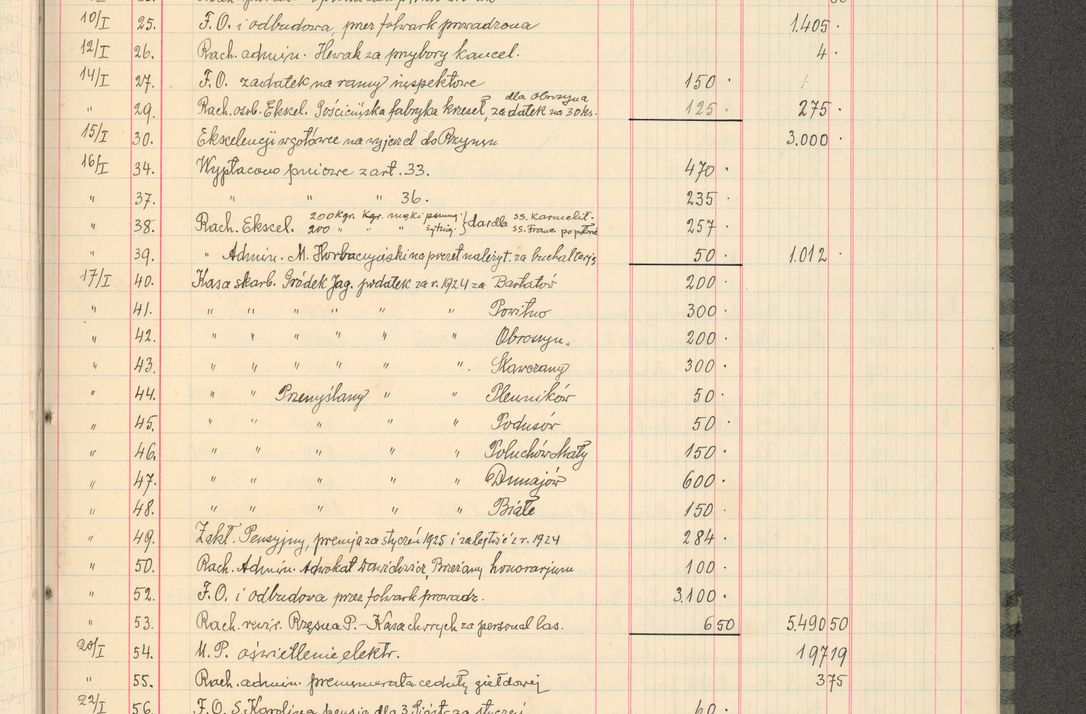 10/I 25. F.O. i odbudowa, przez folwark prowadzona 1.405 ·
12/I 26. Rach. admin. Hewak za przybory kancel. 4 ·
14/I 27. F.O. zadatek na ramy inspektowe 150 ·
" 29. Rach. osob. Ekscel. Gościcińska fabryka krzeseł, zadatek na 30 ks. dla Obroszyna 125 · 275 ·
15/I 30. Ekscelencji w gotówce na wyjazd do Rzymu 3.000 ·
16/I 34. Wypłacono pniowe z art. 33. 470 ·
" 37. " " " 36. 235
" 38. Rach. Ekscel. 200 Kgr. Kgr. mąki pszennej } dar dla SS. Karmelit. 257 ·
200 " " " żytniej SS. Franc.
" 39. " Admin. M. Horbaczyński na poczet należyt. za buchalterję 50 · 1.012 ·
17/I 40. Kasa skarb. Gródek Jag. podatek za r. 1924 za Bartatów 200 ·
" 41. " " " " " " Powitno 300 ·
" 42. " " " " " " Obroszyn. 200 ·
" 43. " " " " " ". Stawczany 300 ·
" 44. " " Przemyślany " " Plenników 50 ·
" 45. " " " " " Podusów 50 ·
" 46. " " " " " Połuchów Mały 150 ·
" 47. " " " " " Dunajów 600 ·
" 48. " " " " " Białe 150 ·
" 49. Zakł. Pensyjny, premja za styczeń 1925 i zaległość z r. 1924 284 ·
" 50. Rach. Admin. Adwokat Dawidowicz, Brzeżany honorarjum 100 ·
" 52. F.O. i odbudowa przez folwark prowadz. 3.100 ·
" 53. Rach. rewir. Rzęsna P. - Kasa chorych za personal las. 6 50 5.490 50
20/I 54. M.P. oświetlenie elektr. 197 19
" 55. Rach. admin. prenumerata ceduły giełdowej 3 75
22/I 56. F.O. S. Karolina pensja dla 3 Sióstr za styczeń 60 ·